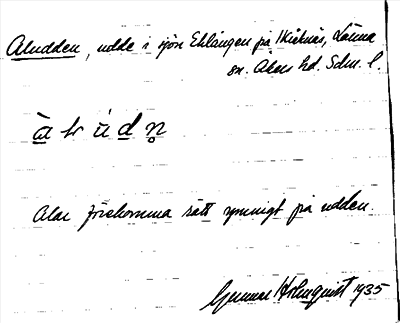 Aludden, udde i sjön Eklången på Kirknäs, Länna
sn. Åkers hd. Sdm. l.
Alar förekomma rätt ymnigt på udden.
Gunnar Holmquist 1935